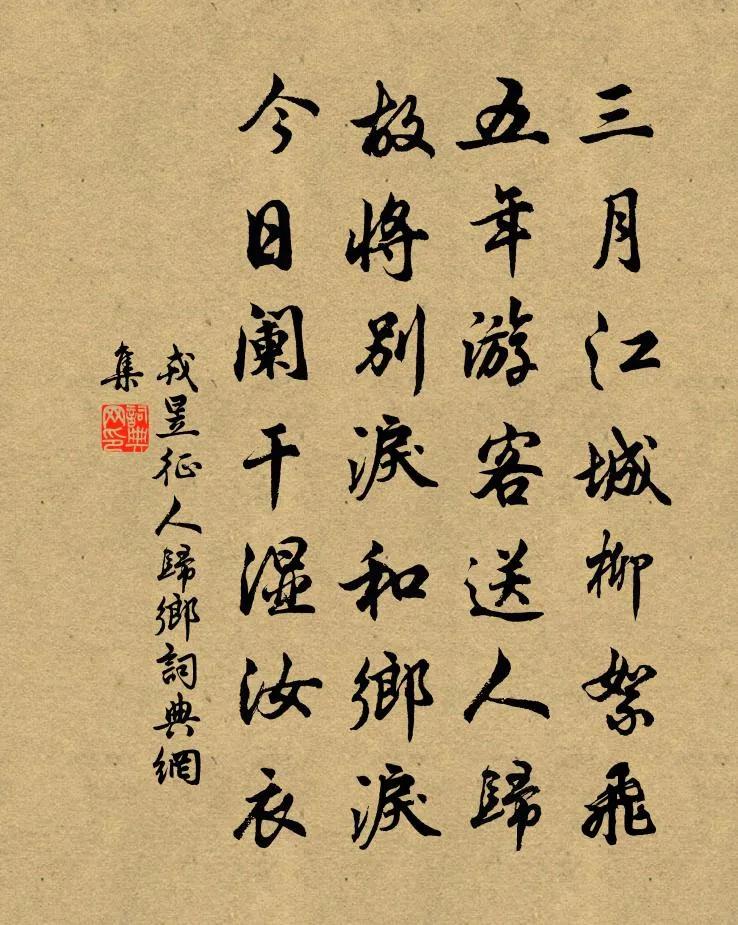 三月江城柳絮飛
五年游客送人歸
故將別淚和鄉淚
今日闌干湿汝衣
戎昱征人歸鄉詞典網
集
詞典
网印